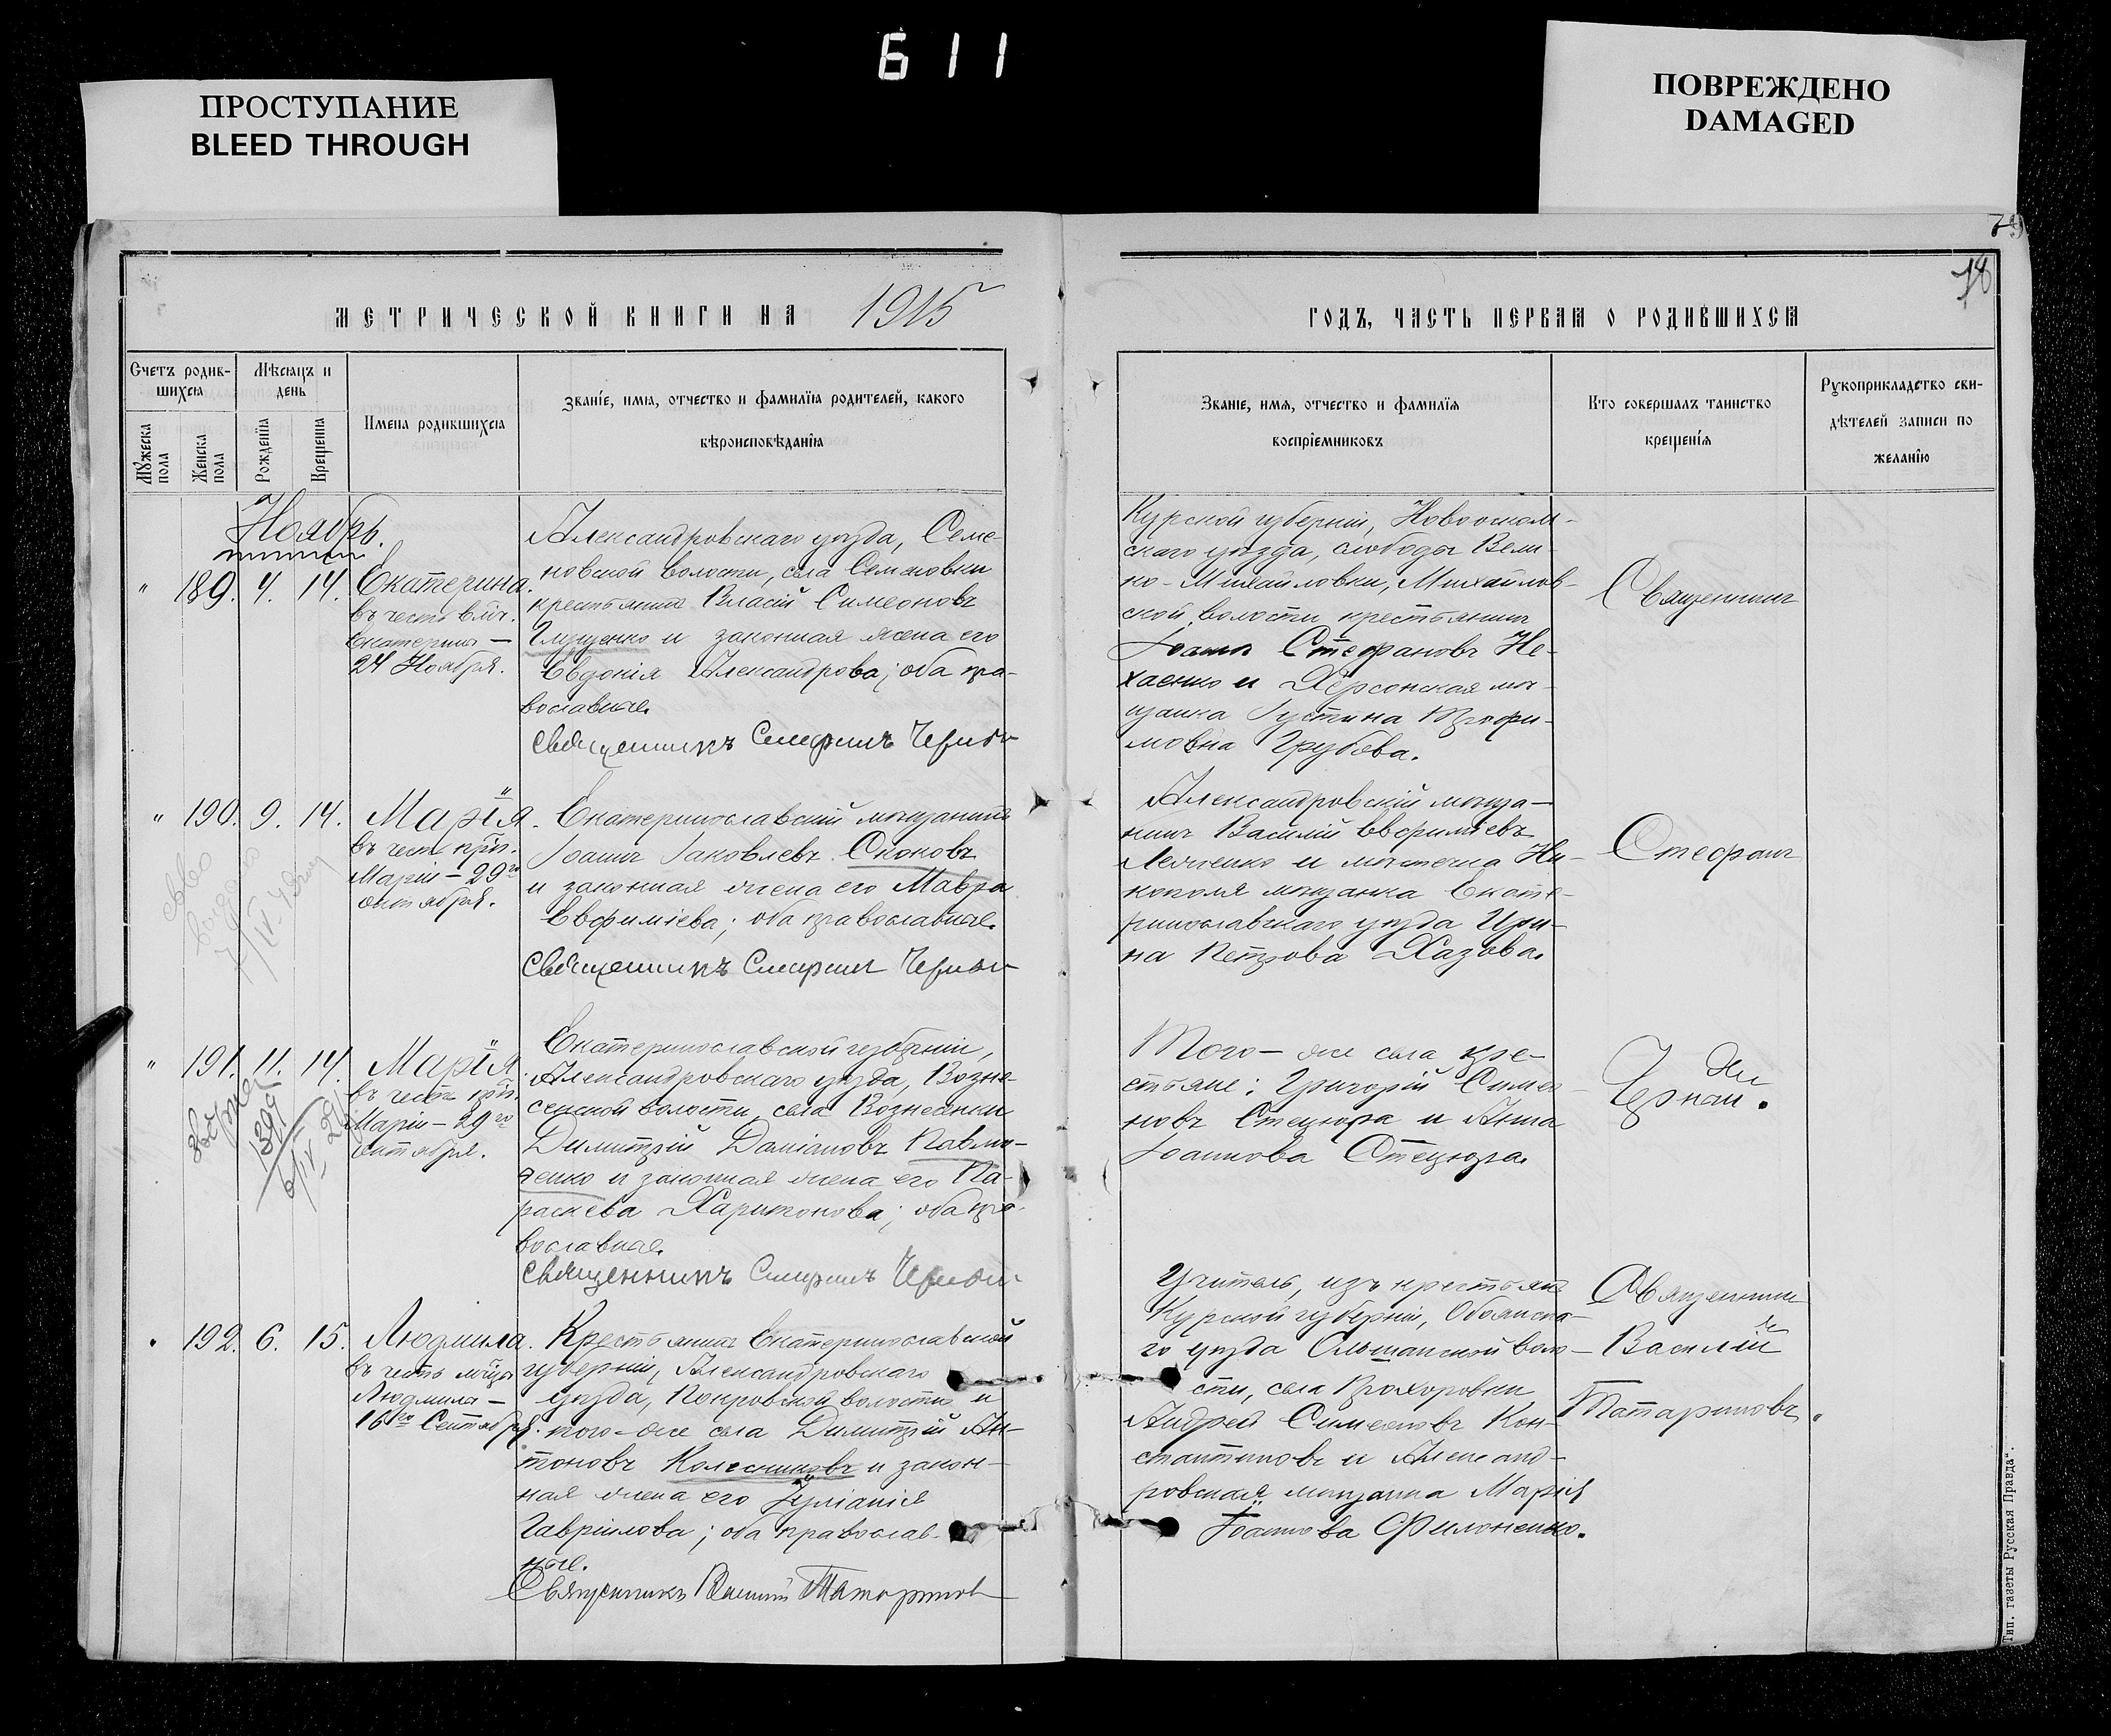 611
ПРОСТУПАНИЕ
BLEED THROUGH
ПОВРЕЖДЕНО
DAMAGED
79
78
МЕТРИЧЕСКОЙ КНИГИ НА 1915
ГОДЪ, ЧАСТЬ ПЕРВАЯ О РОДИВШИХСЯ
Счетъ родив-
шихся
Мѣсяцъ и
день
Мужеска
пола
Женска
пола
Рожденія
Крещенія
Имена родившихся
Званіе, имя, отчество и фамилія родителей, какого
вѣроисповѣданія
Званіе, имя, отчество и фамилія
воспріемниковъ
Кто совершалъ таинство
крещенія
Рукоприкладство сви-
дѣтелей записи по
желанію
Ноябрь.
" 189. 4. 14. Екатерина.
въ честь влмч.
Екатерины —
24 Ноября.
Александровскаго уѣзда, Семе-
новской волости, села Семеновки
крестьянинъ Власій Симеоновъ
Глущенко и законная жена его
Евдокія Александрова; оба пра-
вославные.
Священникъ Стефанъ
Курской губерніи, Новооскол-
скаго уѣзда, слободы Вели-
ко-Михайловки, Михайлов-
ской волости крестьянинъ
Іоаннъ Стефановъ Не-
хаенко и Херсонская мѣ-
щанка Іустина Трофи-
мовна Грубова.
Священникъ
" 190. 9. 14. Марія.
въ честь прп.
Маріи — 29го
октября.
Екатеринославскій мѣщанинъ
Іоаннъ Іаковлевъ Скоковъ
и законная жена его Мавра
Евфиміева; оба православные.
Священникъ Стефанъ
Александровскій мѣща-
нинъ Василій Евфиміевъ
и мѣстечка Ни-
кополя мѣщанка Екате-
ринославскаго уѣзда Ири-
на Петрова Хазова.
Стефанъ
" 191. 11. 14. Марія.
въ честь прп.
Маріи — 29го
октября.
Екатеринославской губерніи,
Александровскаго уѣзда, Возне-
сенской волости, села Вознесенки
Димитрій Даміановъ Павли-
ченко и законная жена его Па-
раскева Харитонова; оба пра-
вославные.
Священникъ Стефанъ
Того-же села кре-
стьяне: Григорій Симео-
новъ Стецюра и Анна
Іоаннова Стецюра.
" 192. 6. 15. Людмила.
въ честь мчцы
Людмилы —
16го Сентября.
Крестьянинъ Екатеринославской
губерніи, Александровскаго
уѣзда, Покровской волости и
того-же села Димитрій Ан-
тоновъ Колесниковъ и закон-
ная жена его Іуліанія
Гавріилова; оба православ-
ные.
Священникъ Василій Татариновъ
Учитель, изъ крестьянъ
Курской губерніи, Обоянска-
го уѣзда Ольшанской воло-
сти, села Прохоровки
Андрей Симеоновъ Кон-
стантиновъ и Александ-
ровская мѣщанка Марія
Іоаннова Филоненко.
Священникъ
Василій
Татариновъ.
Тип. газеты Русская Правда".